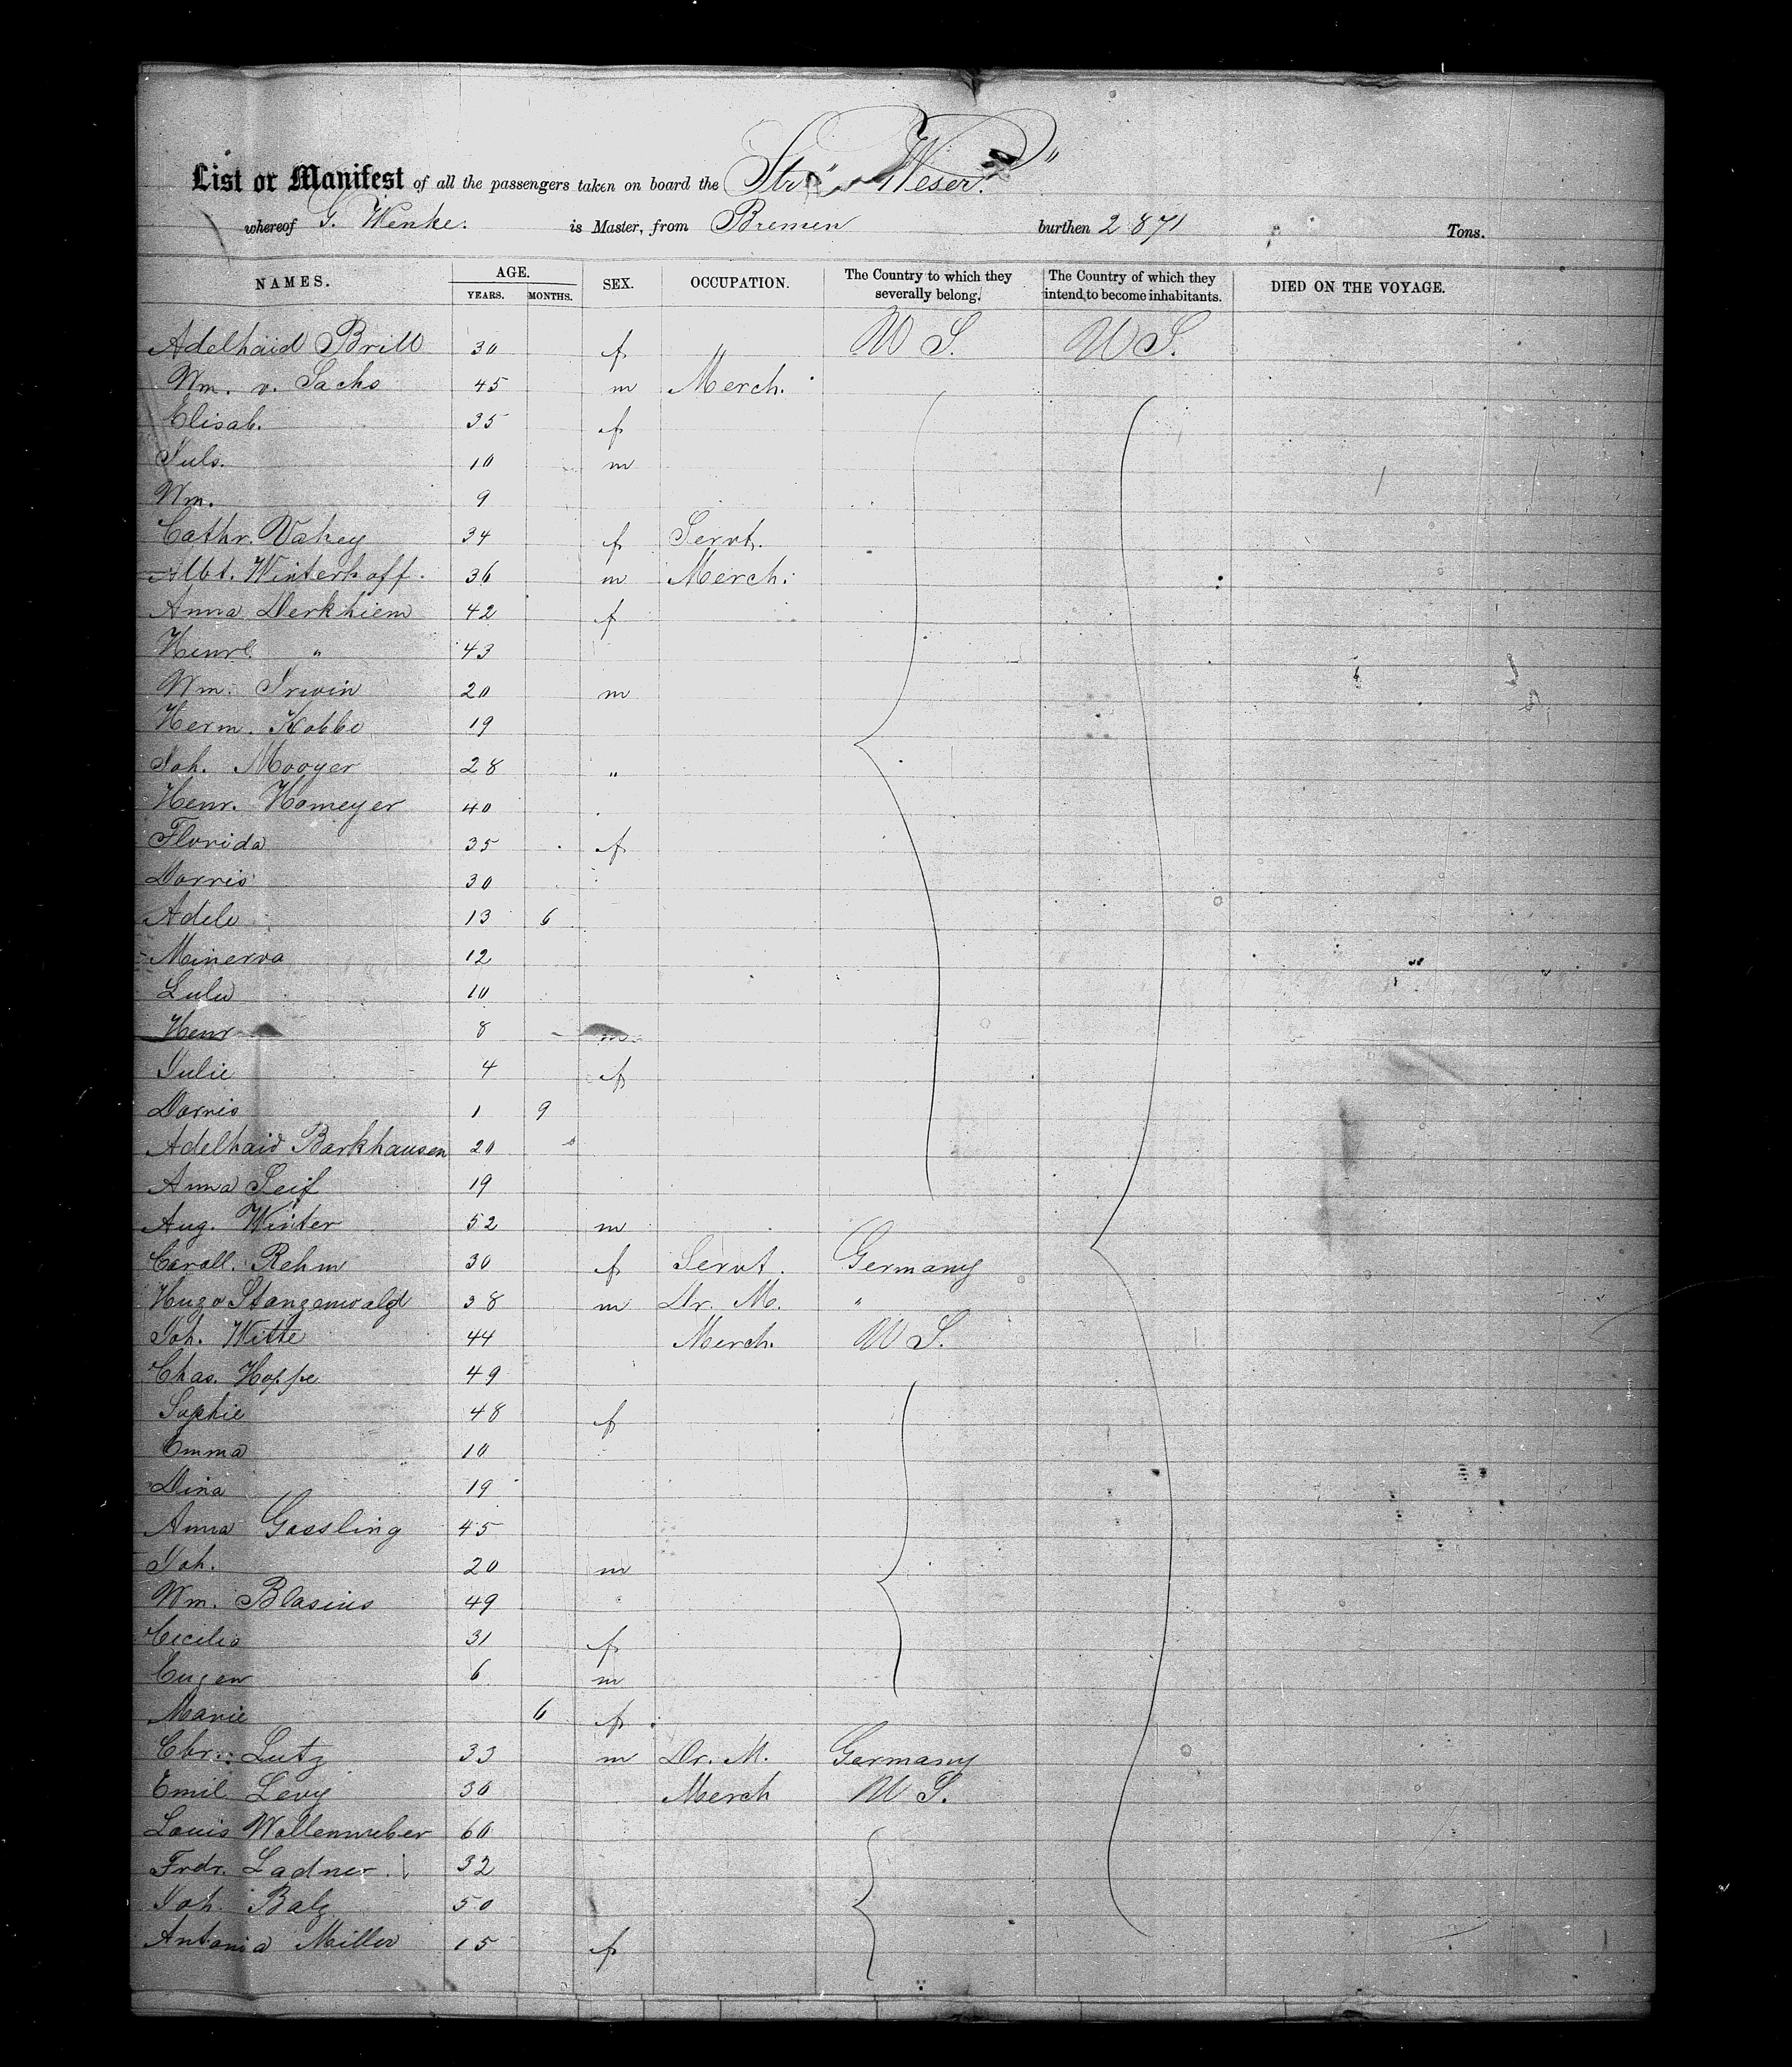 List or Manifest of all the passengers taken on board the Str "Weser"
whereof G. Wenke. is Master, from Bremen burthen 2871 Tons.
NAMES. AGE. SEX. OCCUPATION. The Country to which they severally belong. The Country of which they intend to become inhabitants. DIED ON THE VOYAGE.
YEARS. MONTHS.
Adelhaid Brill 30 f U S. U S.
Wm. v. Sachs 45 m Merch.
Elisab. 35 f
Juls. 10 m
Wm. 9
Cathr. Vahey 34 f Servt.
Albt. Winterhoff. 36 m Merch.
Anna Derkhiem 42 f
Henrl. " 43
Wm. Irwin 20 m
Herm. Kobbe 19
Joh. Mooyer 28 "
Henr. Homeyer 40
Florida 35 f
Dorris 30
Adele 13 6
Minerva 12
Lulu 10
Henr 8 m
Julie 4 f
Dorris 1 9
Adelhaid Barkhausen 20
Anna Seif 19
Aug. Winter 52 m
Caroll. Rehm 30 f Servt. Germany
Hugo Stangenwald 38 m Dr. M. "
Joh. Witte 44 Merch. U S.
Chas. Hoppe 49
Sophie 48 f
Emma 10
Dina 19
Anna Gossling 45
Joh. 20 m
Wm. Blasius 49
Cecilia 31 f
Eugen 6 m
Marie 6 f
Chr. Lutz 33 m Dr. M. Germany
Emil Levy 30 Merch U S.
Louis Wollenweber 60
Frdr. Ladner 32
Joh. Balz 50
Antonia Miller 15 f